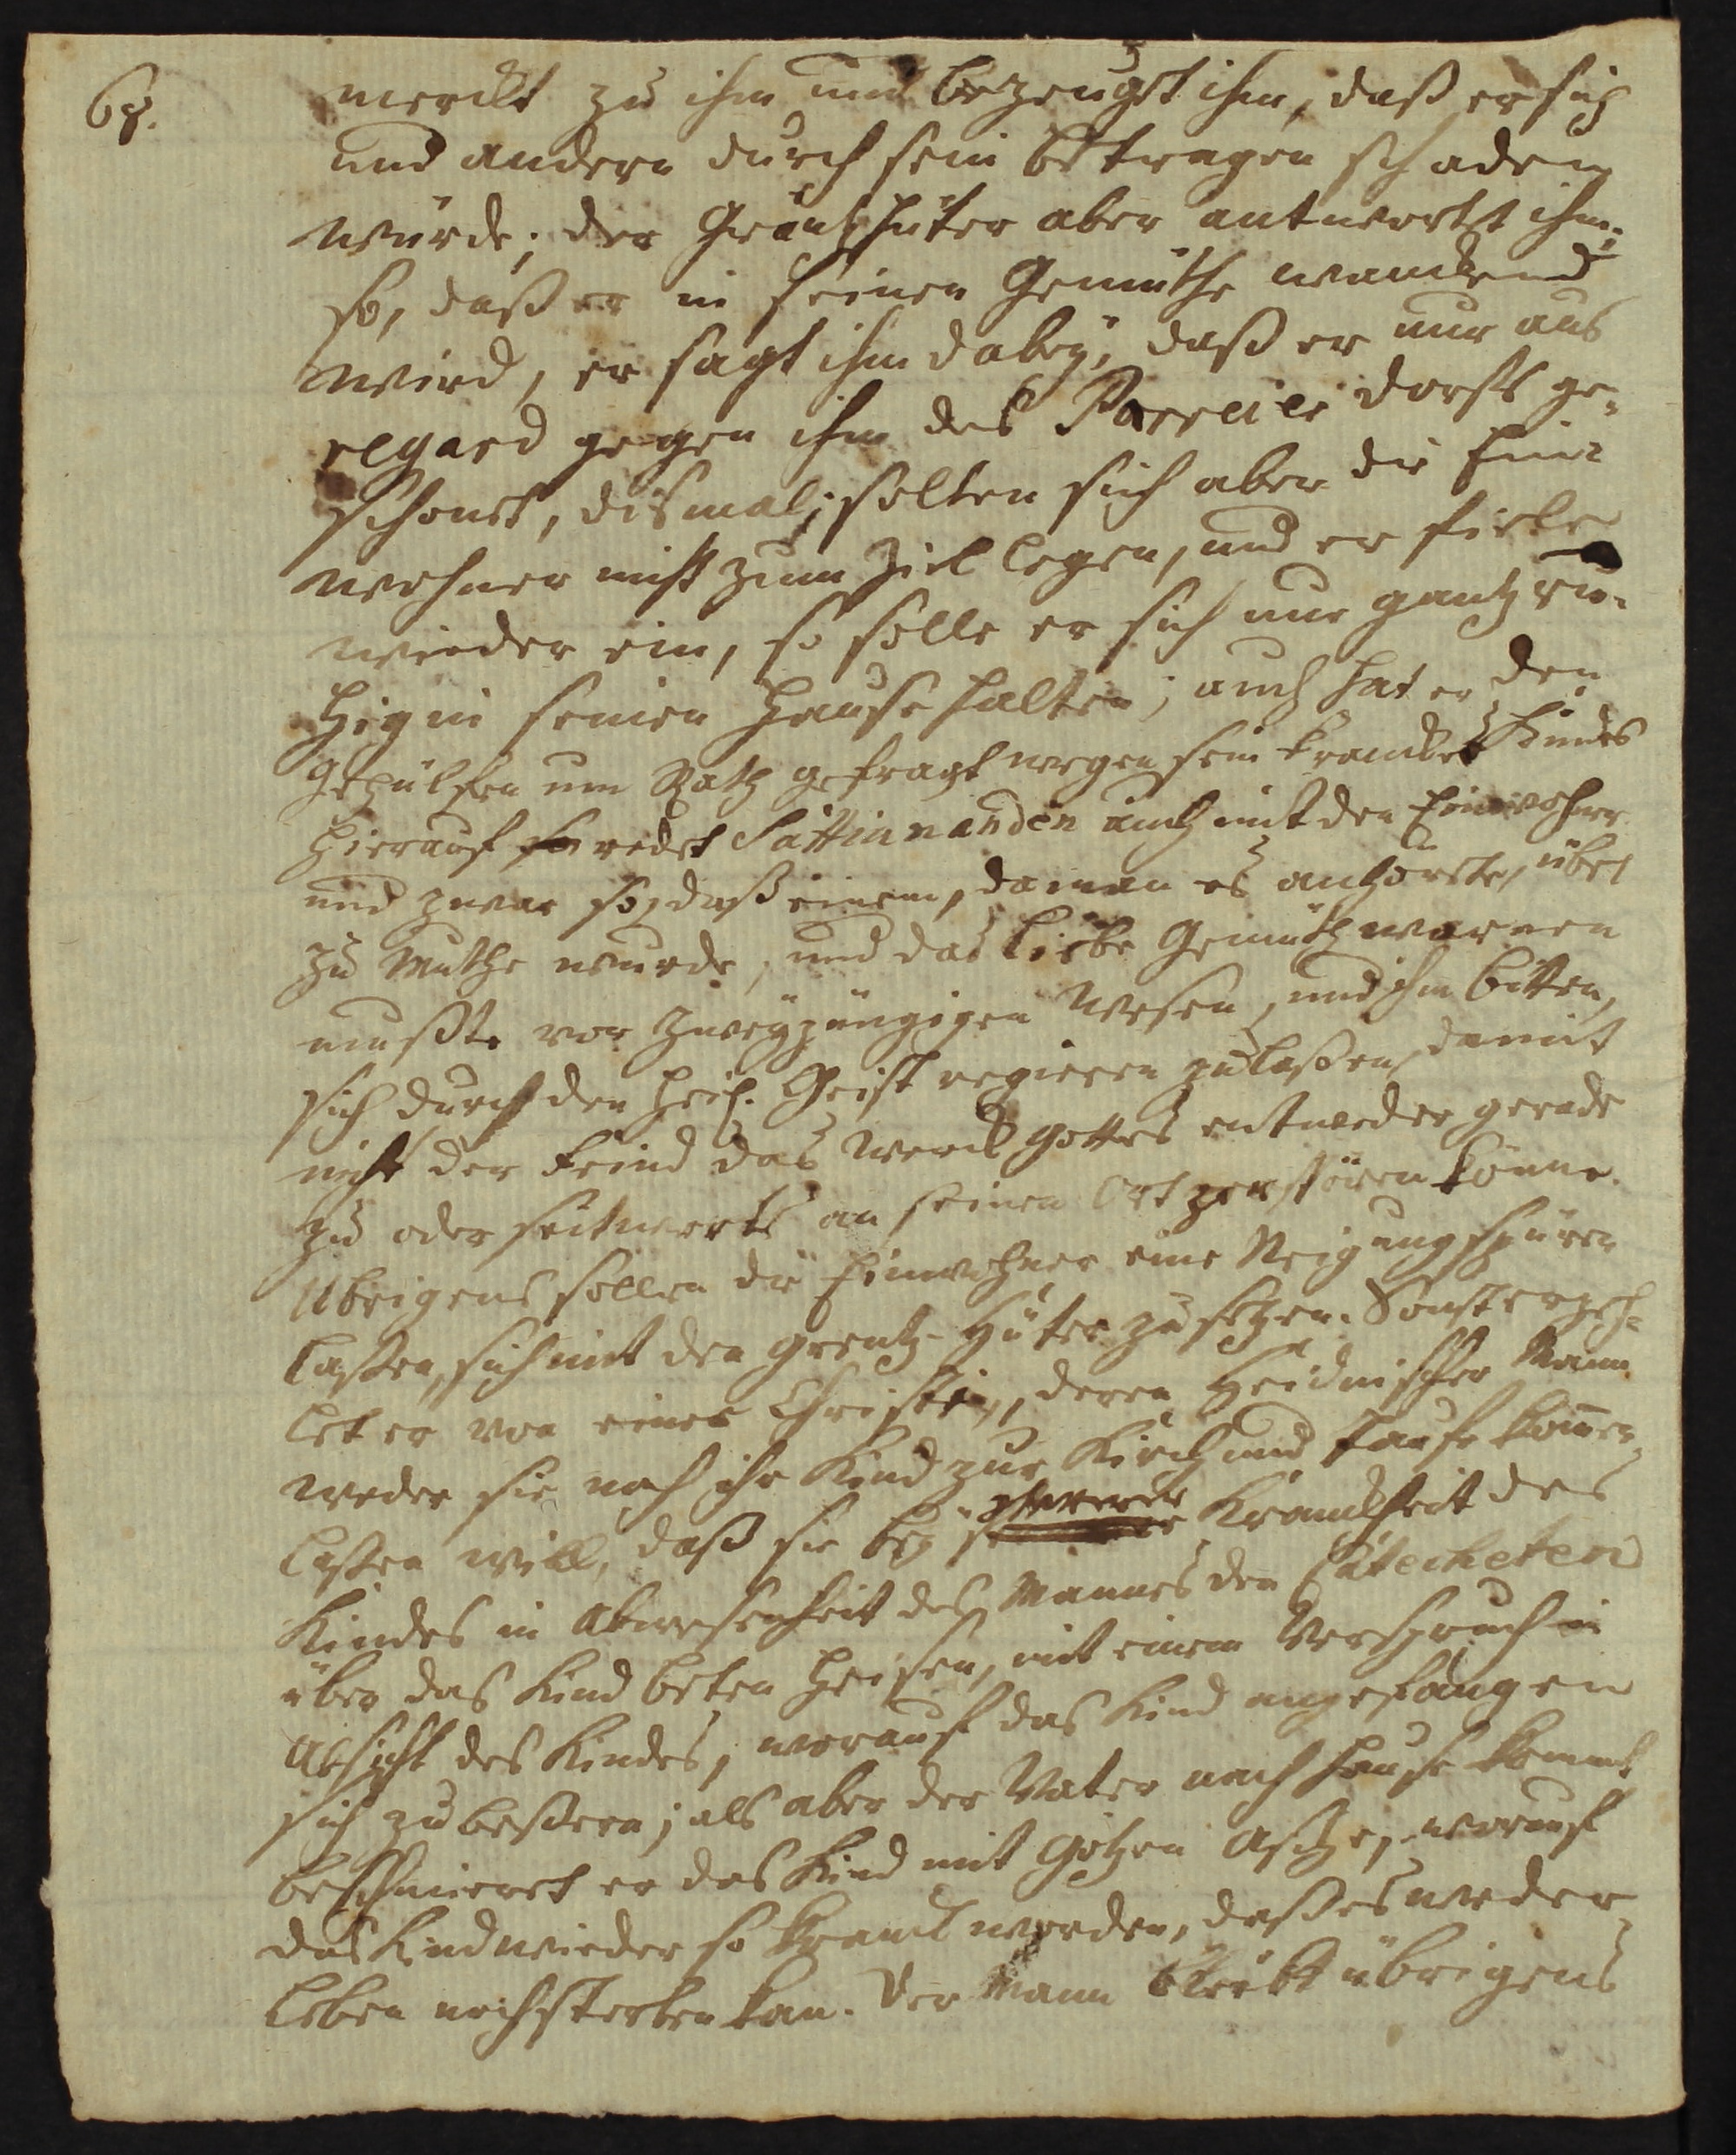 68.
merckt zu ihm und bezeuget ihm, daß er sich
und andern durch sein betragen schaden
würde; der Gräntzhüter aber antwortet ihm,
so, daß er in seinen Gemüthe wanckend
wird, er sagt ihm dabey, daß er nur aus
regard gegen ihm des Parreier dorfs ge-
schonet, dismal; solten sich aber die Ein-
wohner nicht zum Ziel legen, und er fiele
wieder ein, so solle er sich nur gantz ru-
hig in seinen Hause halten; auch hat er den
Gehülfen um Rath gefragt wegen sein kranckes Kindes
Hierauf redet Sattianaden auch mit den Einwohner
und zwar so, daß einem, da man es anhörete, übel
zu Muthe wurde, und das liebe Gemüth warnen
mußte vor zweyzüngigen Wesen, und ihn bitten,
sich durch den Heil. Geist regieren zu laßen, damit
nicht der Feind das Werck Gottes entweder gerade
zu oder seitwerts an seinen Ort zerstören könne.
Ubrigens sollen die Einwohner eine Neigung spüren
laßen, sich mit den Grentz-Hüter zu setzen. Sonst erzeh-
let er von einer Christin, deren Heidnischer Mann
weder sie noch ihr Kind zur Kirch und Taufe kommen
laßen will, daß sie bey schwerer Kranckheit des
Kindes in Abwesenheit des Mannes den Catecheten
über das Kind beten heisen, mit einem Versprechen in
Absicht des Kindes, worauf das Kind angefangen
sich zu beßern; als aber der Vater nach Hause kommt
beschmieret er das Kind mit Götzen Asche, worauf
das Kind wieder so kranck worden, daß es weder
leben noch sterben kan. Der Mann bleibt übrigens